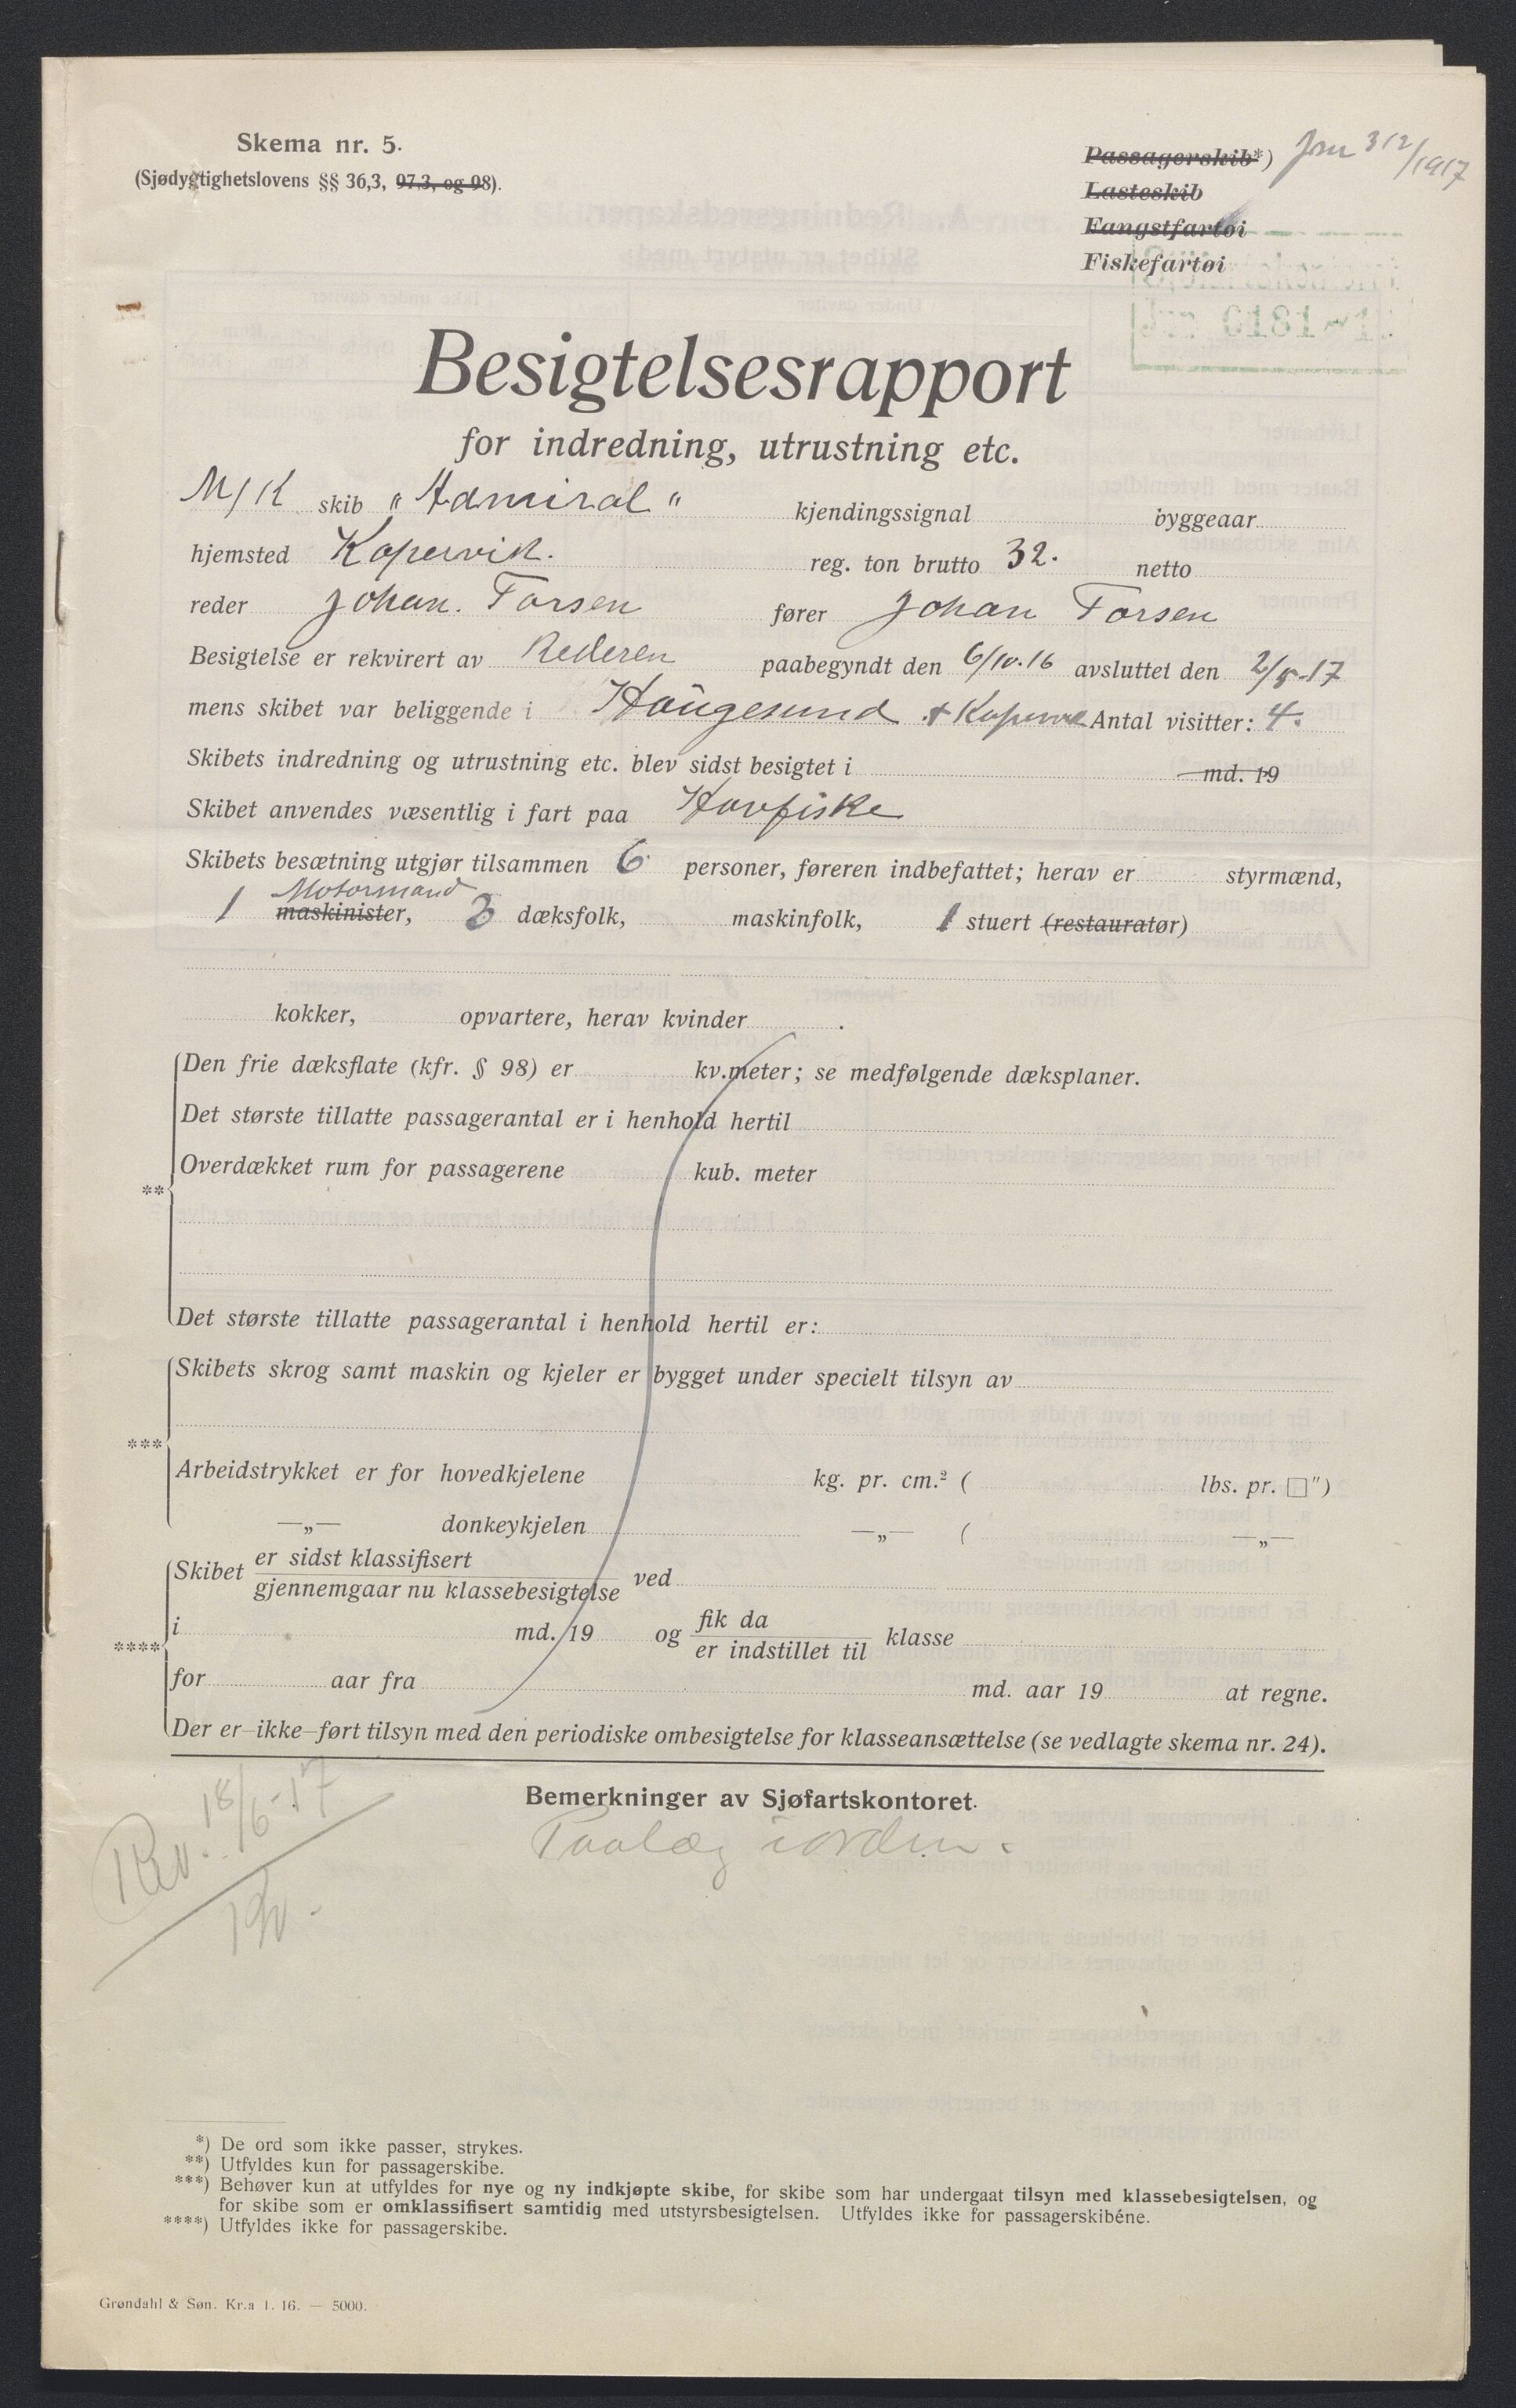 Skema nr. 5.
(Sjødygtighetslovens §§ 36,3, 97,3, og 98).
Passagerskib*)
Jnr 312/1917
Lasteskib
Fangstfartøi
Fiskefartøi
Jnr 0181-1
Besigtelsesrapport
for indredning, utrustning etc.
M/K skib "Admiral" kjendingssignal byggeaar
hjemsted Kopervik. reg. ton brutto 32. netto
reder Johan. Torsen fører Johan Torsen
Besigtelse er rekvirert av Rederen paabegyndt den 6/10.16 avsluttet den 2/5-17
mens skibet var beliggende i Haugesund + Kopervik Antal visitter: 4.
Skibets indredning og utrustning etc. blev sidst besigtet i md. 19
Skibet anvendes væsentlig i fart paa Havfiske
Skibets besætning utgjør tilsammen 6 personer, føreren indbefattet; herav er styrmænd,
Motormand
1 maskinister, 3 dæksfolk, maskinfolk, 1 stuert (restauratør)
kokker, opvartere, herav kvinder .
Den frie dæksflate (kfr. § 98) er kv.meter; se medfølgende dæksplaner.
Det største tillatte passagerantal er i henhold hertil
Overdækket rum for passagerene kub. meter
**
Det største tillatte passagerantal i henhold hertil er:
Skibets skrog samt maskin og kjeler er bygget under specielt tilsyn av
***
Arbeidstrykket er for hovedkjelene kg. pr. cm.² ( lbs. pr. □")
—„— donkeykjelen —„— ( —„—
Skibet er sidst klassifisert
gjennemgaar nu klassebesigtelse ved
i md. 19 og fik da
er indstillet til klasse
****
for aar fra md. aar 19 at regne.
Der er–ikke–ført tilsyn med den periodiske ombesigtelse for klasseansættelse (se vedlagte skema nr. 24).
Rev. 18/6-17
Bemerkninger av Sjøfartskontoret.
Paalæg iorden.
*) De ord som ikke passer, strykes.
**) Utfyldes kun for passagerskibe.
***) Behøver kun at utfyldes for nye og ny indkjøpte skibe, for skibe som har undergaat tilsyn med klassebesigtelsen, og
for skibe som er omklassifisert samtidig med utstyrsbesigtelsen. Utfyldes ikke for passagerskibéne.
****) Utfyldes ikke for passagerskibe.
Grøndahl & Søn. Kr.a 1. 16. — 5000.